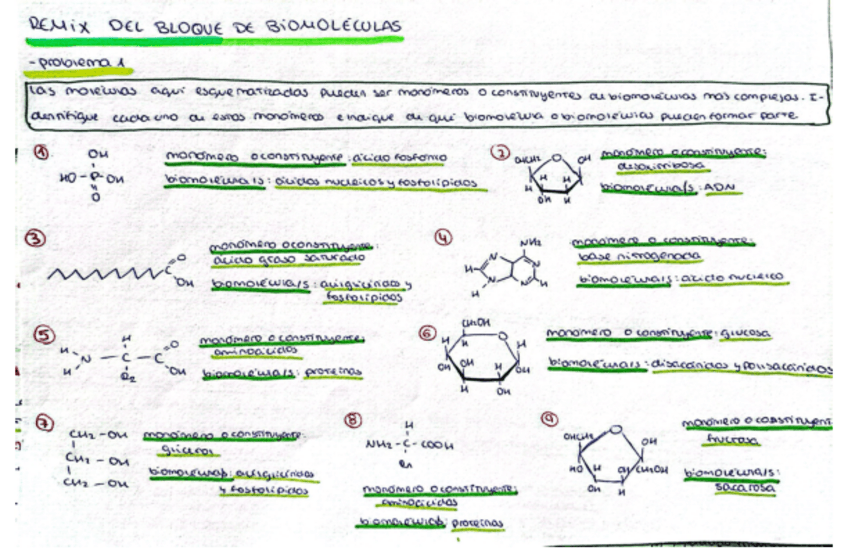 REMIX DEL BLOQUE DE BIOMOLÉCULAS
-problema 1
Las moléculas aquí esquematizadas pueden ser monómeros o constituyentes de biomoléculas más complejas. I-
dentifique cada uno de estos monómeros e indique de qué biomolécula o biomoléculas pueden formar parte
1
OH
HO-P-OH
O
monómero o constituyente: ácido fosfórico
biomolécula/s: ácidos nucleicos y fosfolípidos
2
OHCH2 O OH
H H
H H
OH H
monómero o constituyente:
desoxirribosa
biomolécula/s: ADN
3
C O
OH
monómero o constituyente:
ácido graso saturado
biomolécula/s: acilglicéridos y
fosfolípidos
4
NH2
N N
H
N N H
H
monómero o constituyente:
base nitrogenada
biomolécula/s: ácido nucleico
5
H H O
N - C - C
H R2 OH
monómero o constituyente:
aminoácidos
biomolécula/s: proteínas
6
CH2OH
H O H
H
OH OH H OH
H OH
monómero o constituyente: glucosa
biomolécula/s: disacáridos y polisacáridos
7
CH2-OH
CH2-OH
CH2-OH
monómero o constituyente:
glicerol
biomolécula/s: acilglicéridos
y fosfolípidos
8
H
NH2-C-COOH
R1
monómero o constituyente:
aminoácidos
biomolécula/s: proteínas
9
OHCH2 O OH
HO H OH CH2OH
OH H
monómero o constituyent
fructosa
biomolécula/s:
sacarosa